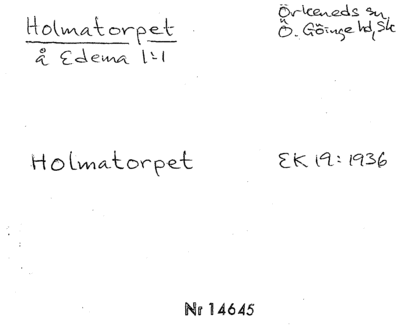 Holmatorpet
å Edema 1:1
Örkeneds sn,
Ö. Göinge hd, Sk
Holmatorpet
EK 19: 1936
Nr 14645